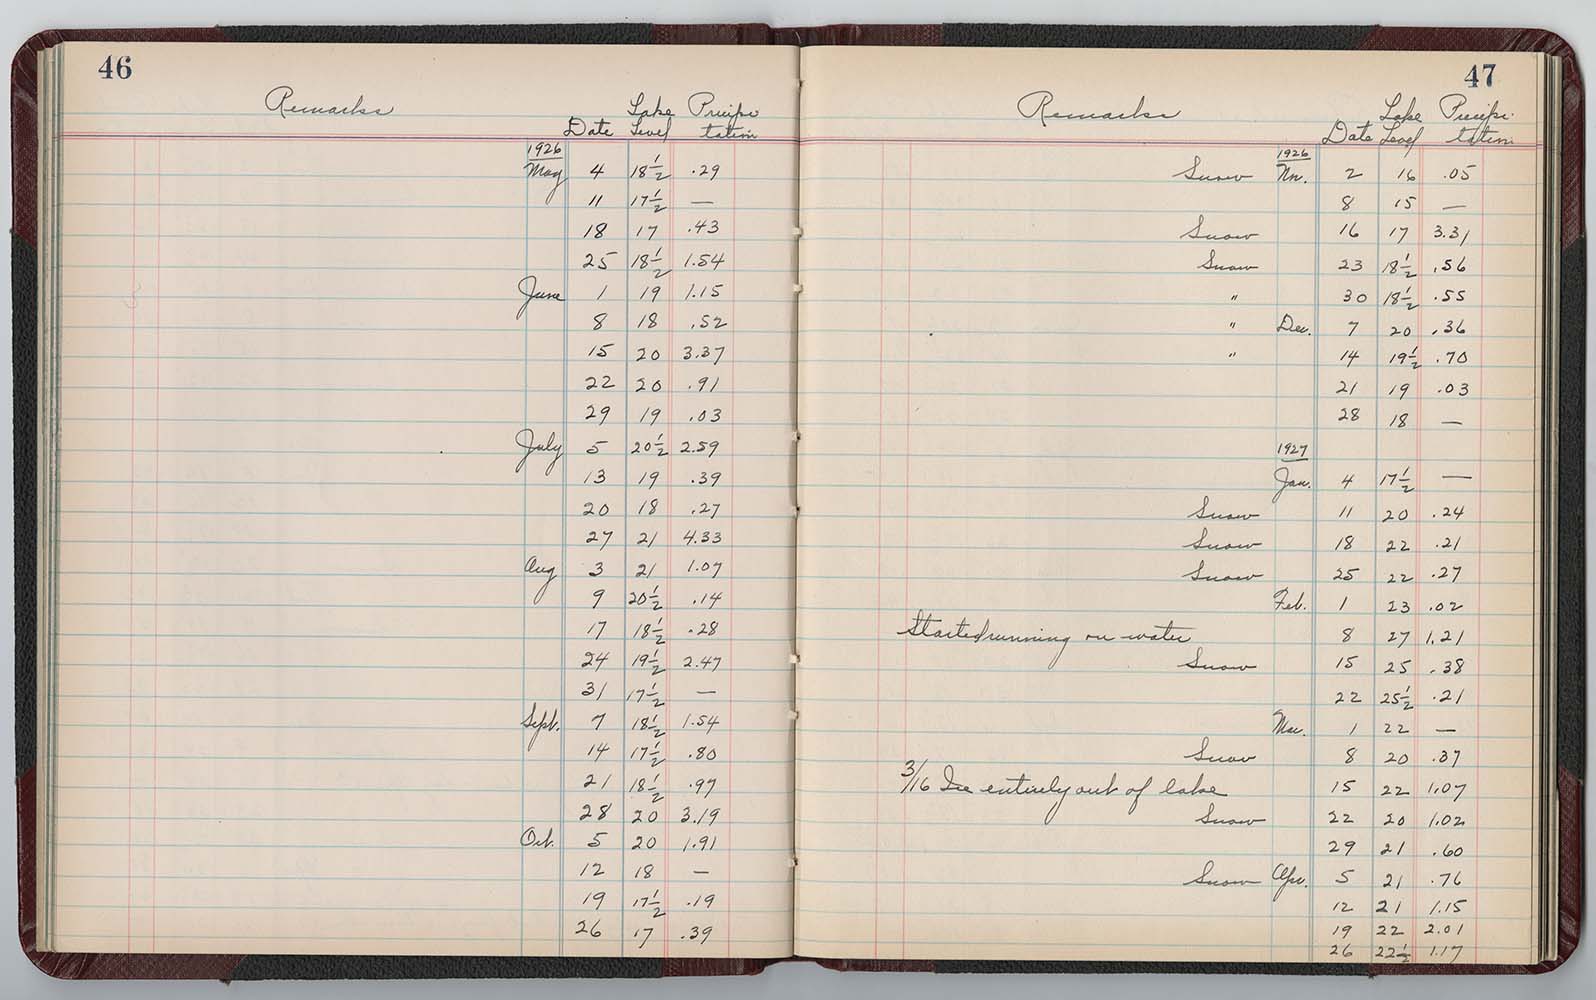 46
Remarks Date Lake Level Precipi-tation
1926
May 4 18½ .29
11 17½ —
18 17 .43
25 18½ 1.54
June 1 19 1.15
8 18 .52
15 20 3.37
22 20 .91
29 19 .03
July 5 20½ 2.59
13 19 .39
20 18 .27
27 21 4.33
Aug 3 21 1.07
9 20½ .14
17 18½ .28
24 19½ 2.47
31 17½ —
Sept. 7 18½ 1.54
14 17½ .80
21 18½ .97
28 20 3.19
Oct. 5 20 1.91
12 18 —
19 17½ .19
26 17 .39
47
Remarks Date Lake Level Precipi-tation
1926
Snow Nov. 2 16 .05
8 15 —
Snow 16 17 3.31
Snow 23 18½ .56
" 30 18½ .55
" Dec. 7 20 .36
" 14 19½ .70
21 19 .03
28 18 —
1927
Jan. 4 17½ —
Snow 11 20 .24
Snow 18 22 .21
Snow 25 22 .27
Feb. 1 23 .02
Started running on water 8 27 1.21
Snow 15 25 .38
22 25½ .21
Mar. 1 22 —
Snow 8 20 .37
3/16 Ice entirely out of lake 15 22 1.07
Snow 22 20 1.02
29 21 .60
Snow Apr. 5 21 .76
12 21 1.15
19 22 2.01
26 22½ 1.17